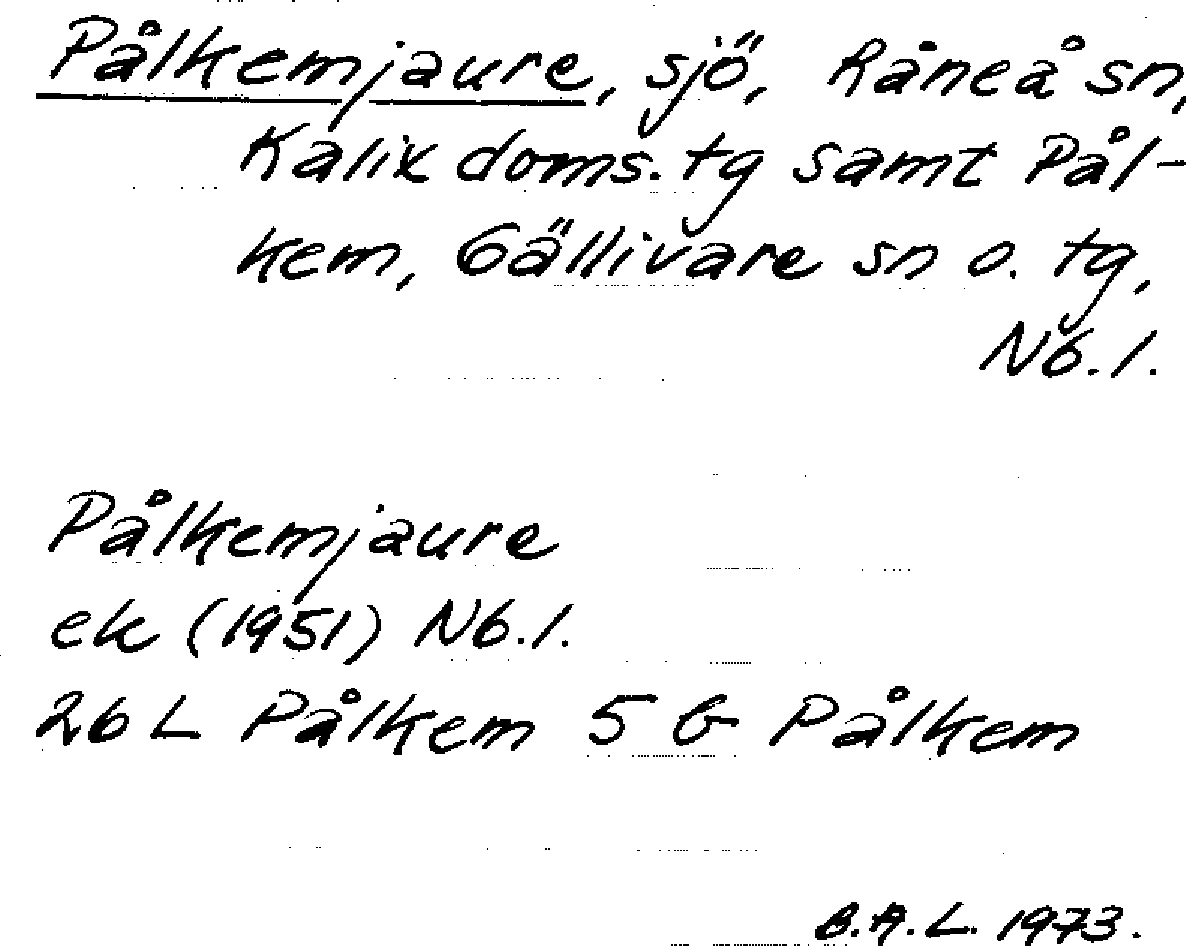 Pålkemjaure, sjö, Råneå sn,
Kalix doms. tg samt Pål-
kem, Gällivare sn o. tg,
Nb. l.
Pålkemjaure
ek (1951) Nb. l.
26 L Pålkem 5 b Pålkem
B.A.L. 1973.